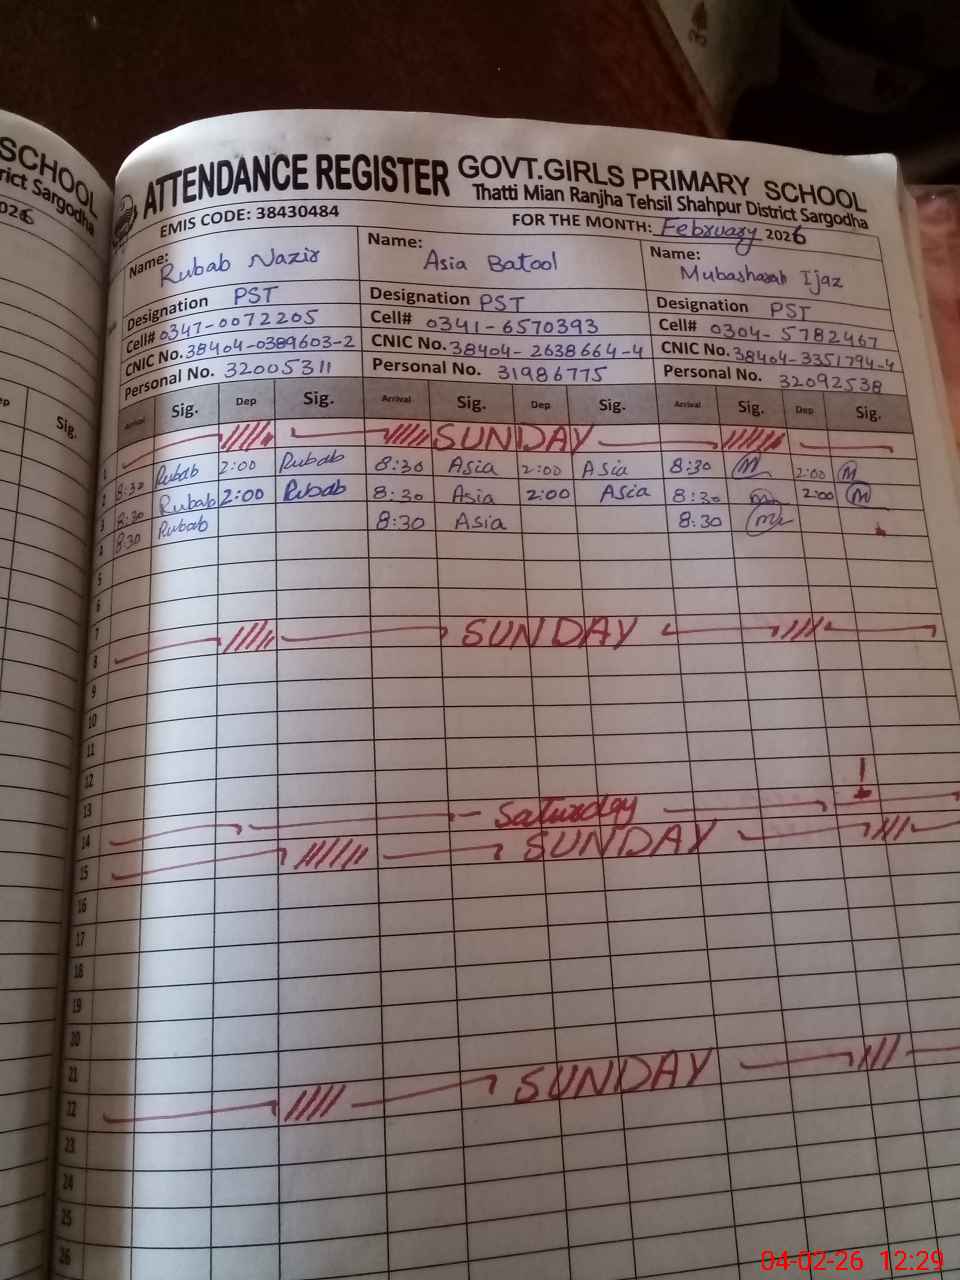 SCHOOL
rict Sargodha
2026
ep
Sig.
ATTENDANCE REGISTER GOVT.GIRLS PRIMARY SCHOOL
Thatti Mian Ranjha Tehsil Shahpur District Sargodha
EMIS CODE: 38430484 FOR THE MONTH: February 2026
Name: Rubab Nazir Name: Asia Batool Name: Mubasharah Ijaz
Designation PST Designation PST Designation PST
Cell# 0347-0072205 Cell# 0341-6570393 Cell# 0304-5782467
CNIC No. 38404-0389603-2 CNIC No. 38404-2638664-4 CNIC No. 38404-3351794-4
Personal No. 32005311 Personal No. 31986775 Personal No. 32092538
Arrival Sig. Dep Sig. Arrival Sig. Dep Sig. Arrival Sig. Dep Sig.
1 SUNDAY
2 8:30 Rubab 2:00 Rubab 8:30 Asia 2:00 Asia 8:30 M 2:00 M
3 8:30 Rubab 2:00 Rubab 8:30 Asia 2:00 Asia 8:30 M 2:00 M
4 8:30 Rubab 8:30 Asia 8:30 M
5
6
7
8 SUNDAY
9
10
11
12
13
14 Saturday
15 SUNDAY
16
17
18
19
20
21
22 SUNDAY
23
24
25
26
04-02-26 12:29